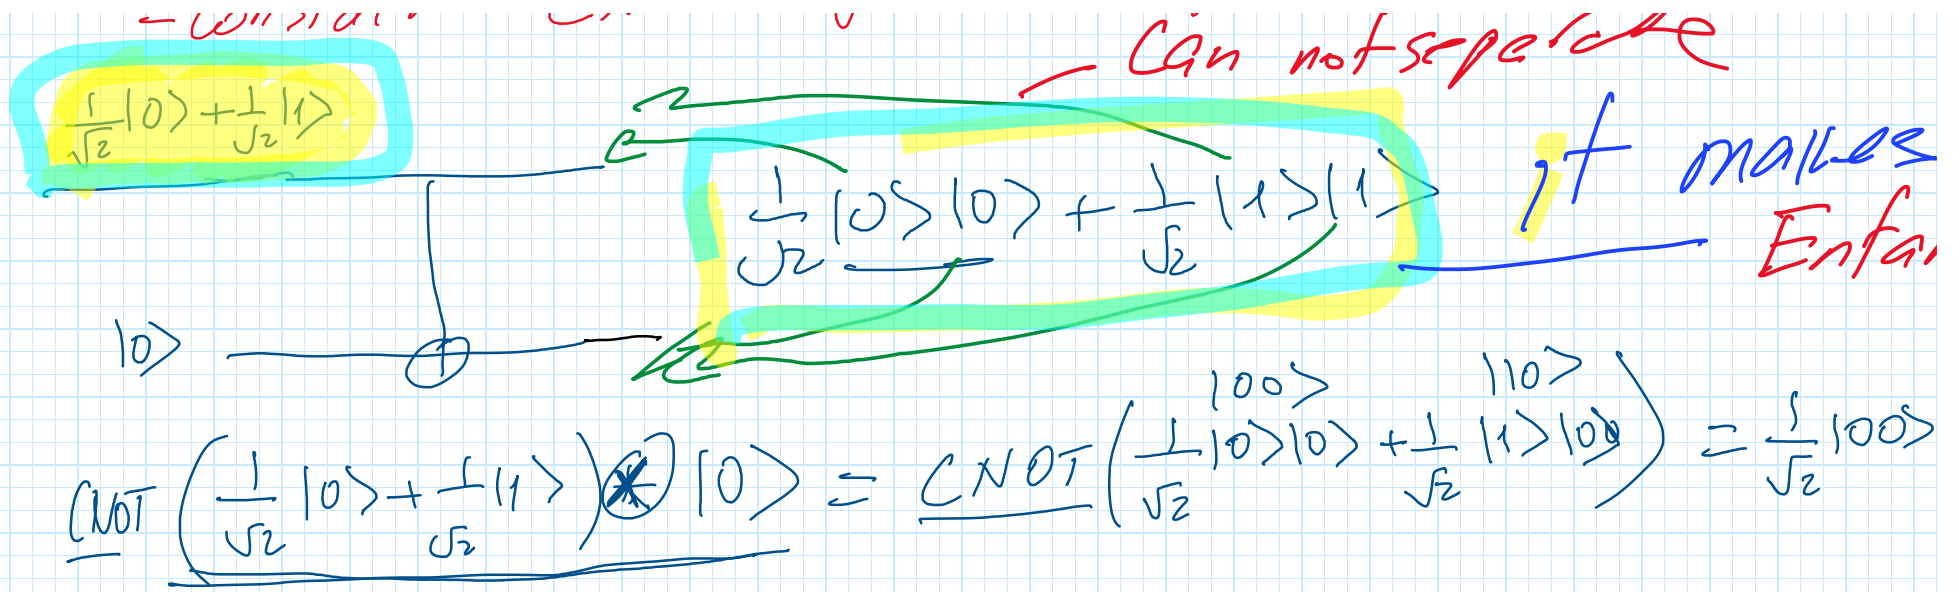 = constant
Can not seperate
1/√2 |0> + 1/√2 |1>
1/√2 |0>|0> + 1/√2 |1>|1>
it makes
|0>
|00> |10>
CNOT (1/√2 |0> + 1/√2 |1>) ⊛ |0> = CNOT (1/√2 |0>|0> + 1/√2 |1>|0>) = 1/√2 |00>